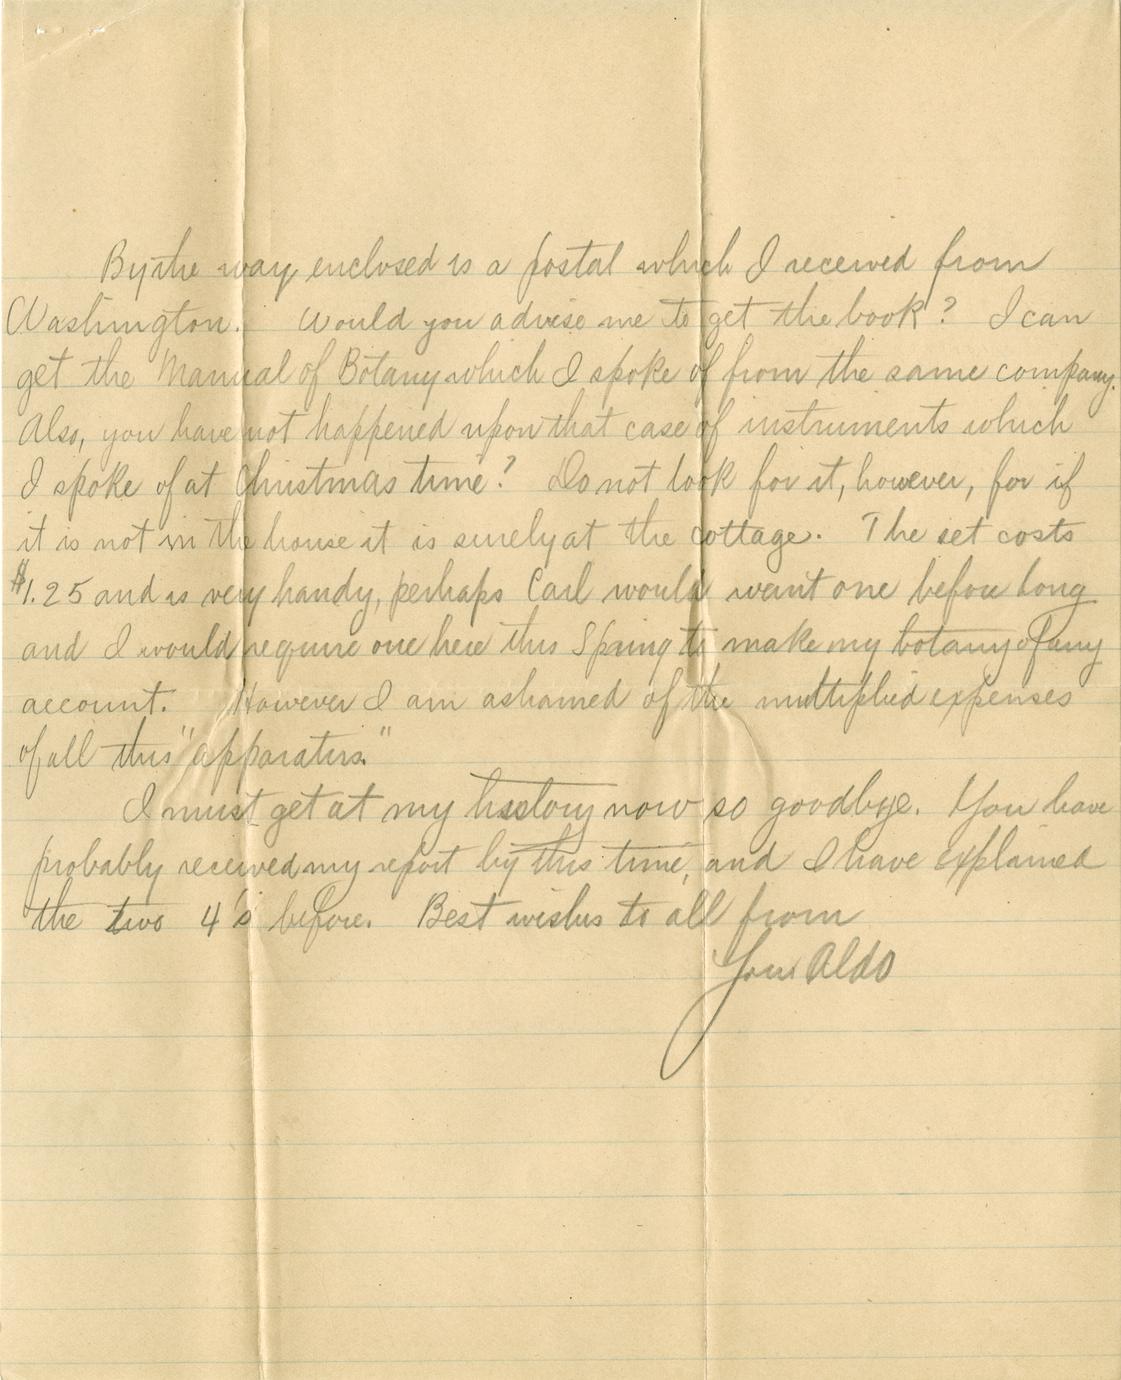 By the way, enclosed is a postal which I received from
Washington. Would you advise me to get the book? I can
get the Manual of Botany which I spoke of from the same company.
Also, you have not happened upon that case of instruments which
I spoke of at Christmas time? Do not look for it, however, for if
it is not in the house it is surely at the cottage. The set costs
$1.25 and is very handy, perhaps Carl would want one before long
and I would require one here this Spring to make my botany of any
account. However I am ashamed of the multiplied expenses
of all this "apparatus."
I must get at my history now so goodbye. You have
probably received my report by this time, and I have explained
the two 4's before. Best wishes to all from
Your Aldo